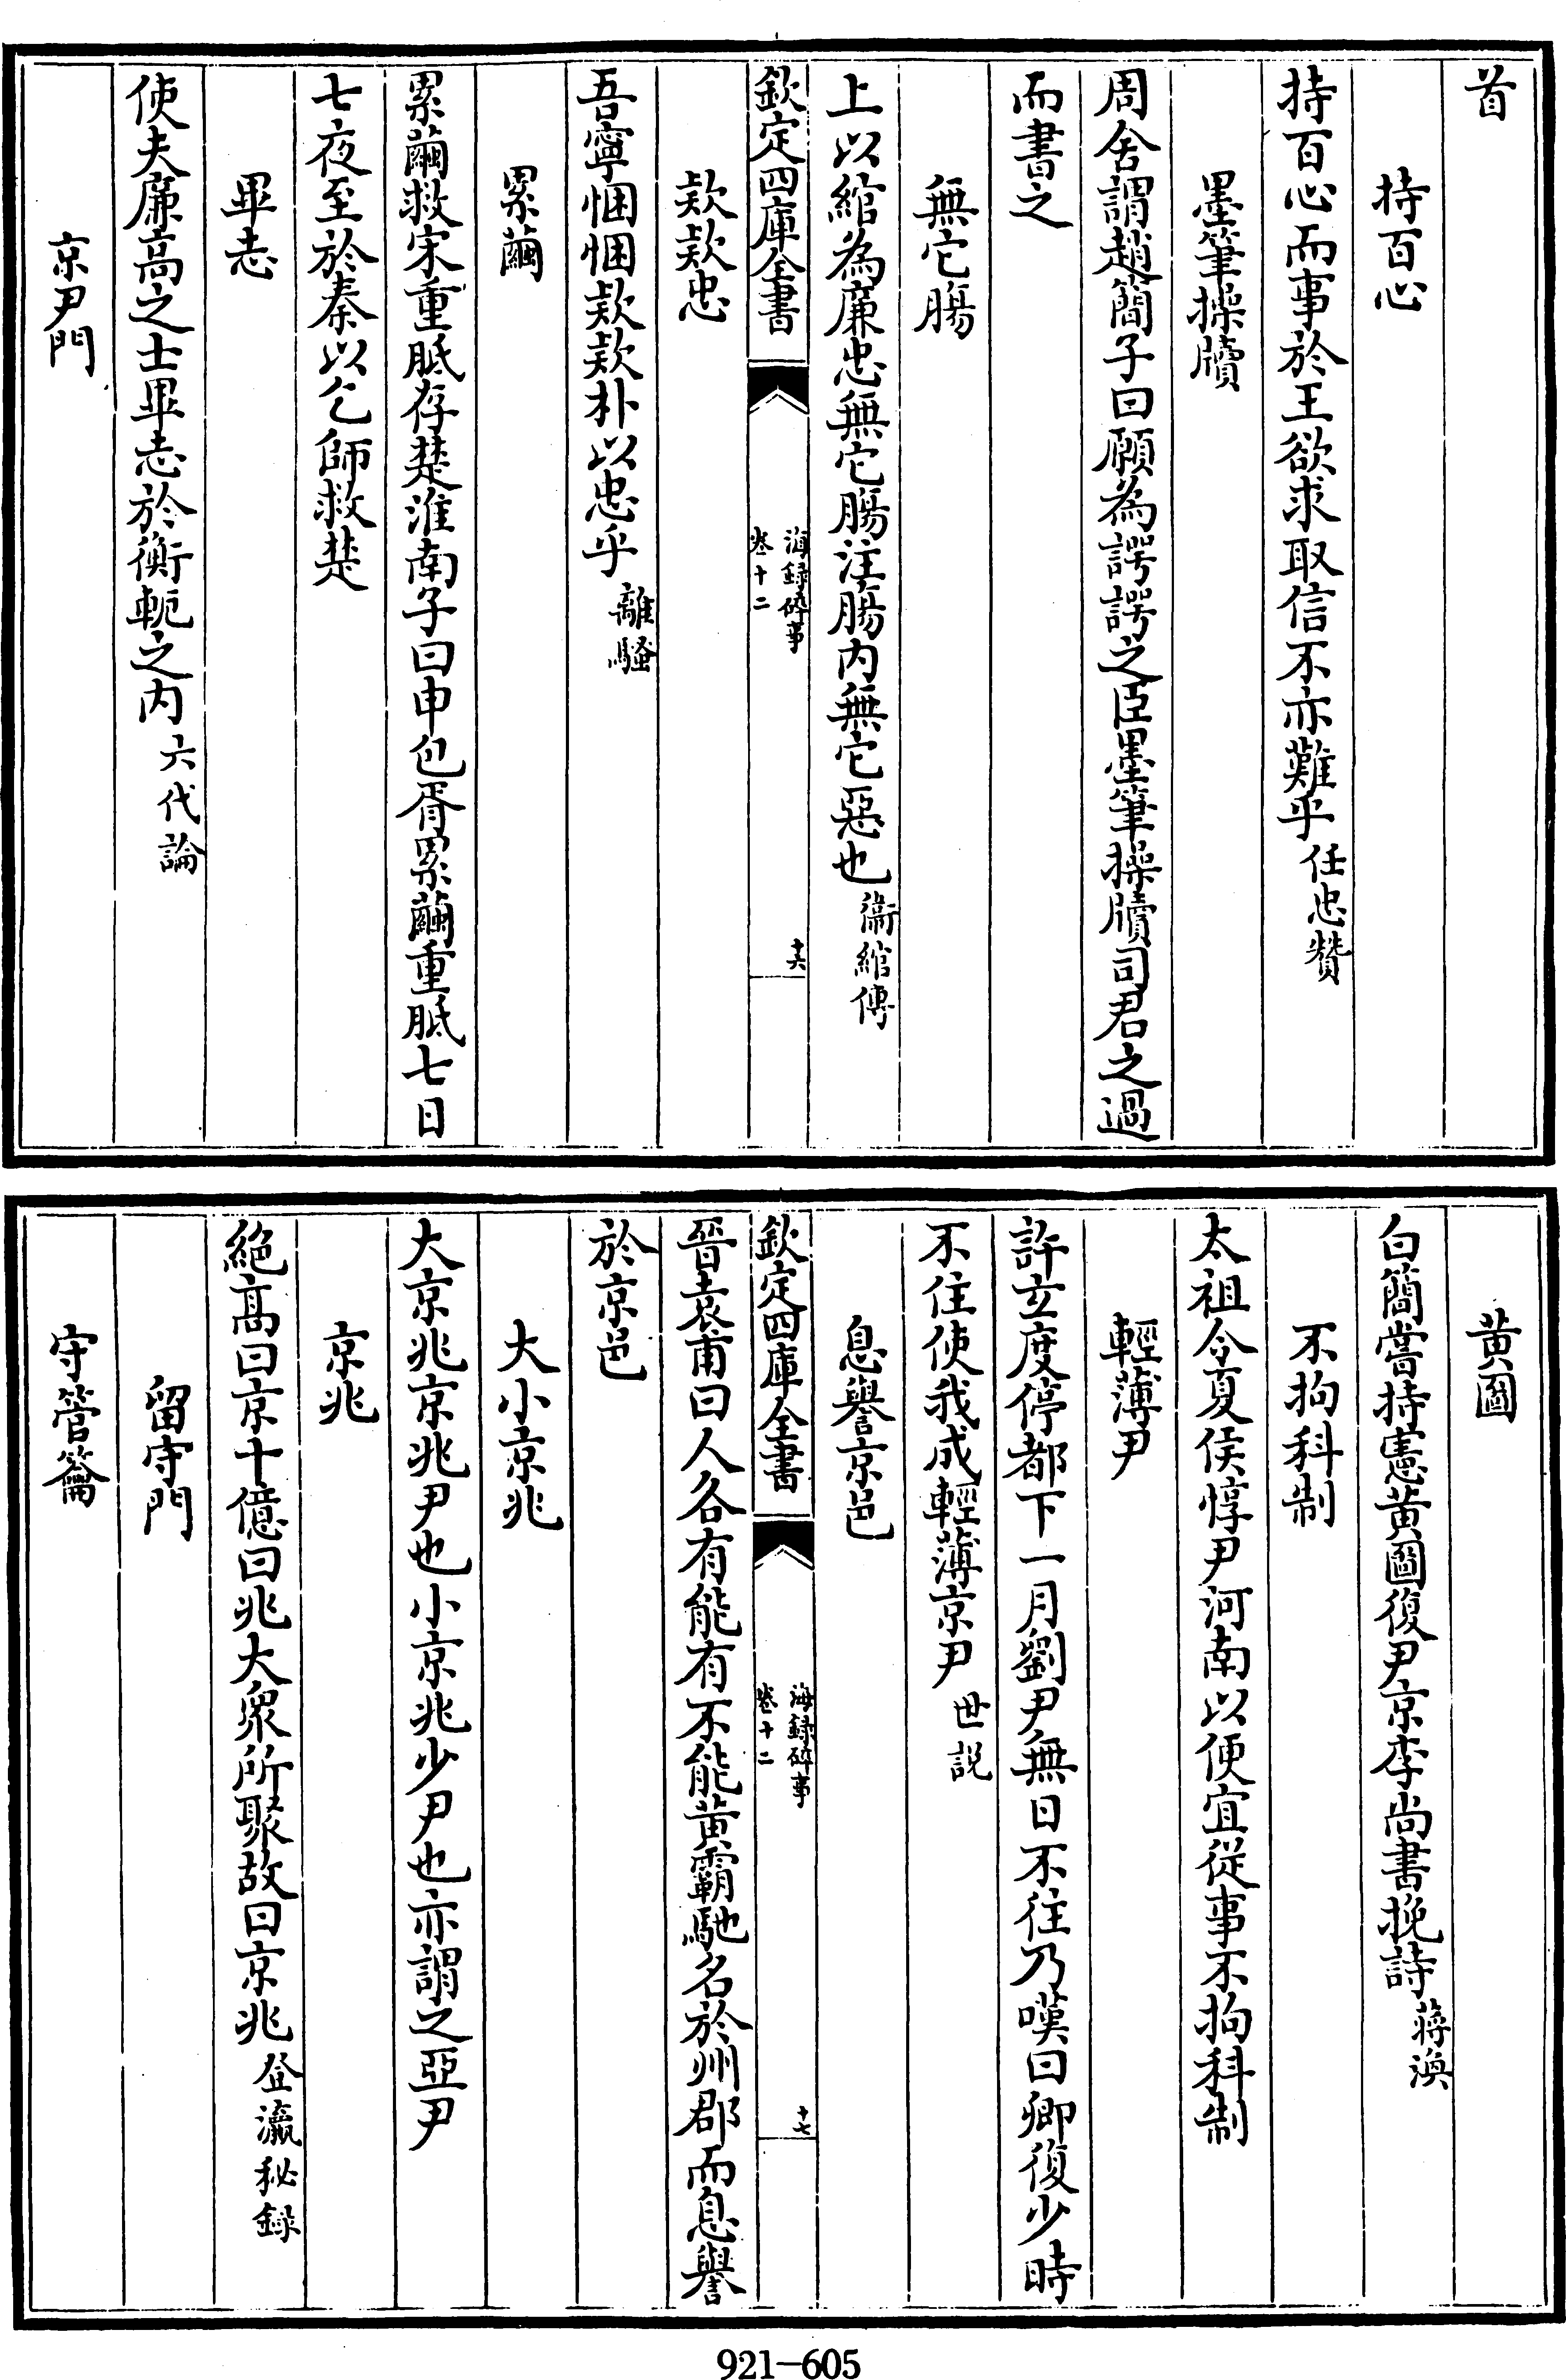 首
持百心
持百心而事於王欲求取信不亦難乎任忠贊
墨筆操牘
周舍謂趙簡子曰願為諤諤之臣墨筆操牘司君之過
而書之
無它腸
上以綰為廉忠無它腸注腸内無它惡也衞綰傳
欽定四庫全書
海録碎事
卷十二
十六
欵欵忠
吾寧悃悃欵欵朴以忠乎離騷
累繭
累繭救宋重胝存楚淮南子曰申包胥累繭重胝七日
七夜至於秦以乞師救楚
畢志
使夫廉高之士畢志於衡軛之内六代論
京尹門
黄圖
白簡嘗持憲黄圖復尹京李尚書挽詩蔣渙
不拘科制
太祖令夏侯惇尹河南以便宜從事不拘科制
輕薄尹
許玄度停都下一月劉尹無日不往乃嘆曰卿復少時
不住使我成輕薄京尹世説
息譽京邑
欽定四庫全書
海録碎事
卷十二
十七
晉袁甫曰人各有能有不能黄霸馳名於州郡而息譽
於京邑
大小京兆
大京兆京兆尹也小京兆少尹也亦謂之亞尹
京兆
絶高曰京十億曰兆大衆所聚故曰京兆登瀛秘録
留守門
守管籥
921-605